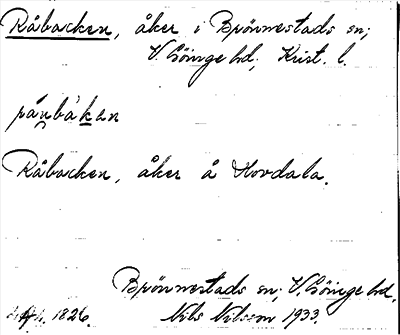 Råbacken, åker i Brönnestads sn;
V. Göinge hd; Krist. l.
Råbacken, åker å Hovdala.
Brönnestads sn; V. Göinge hd.
1826. Nils Nilsson 1933.